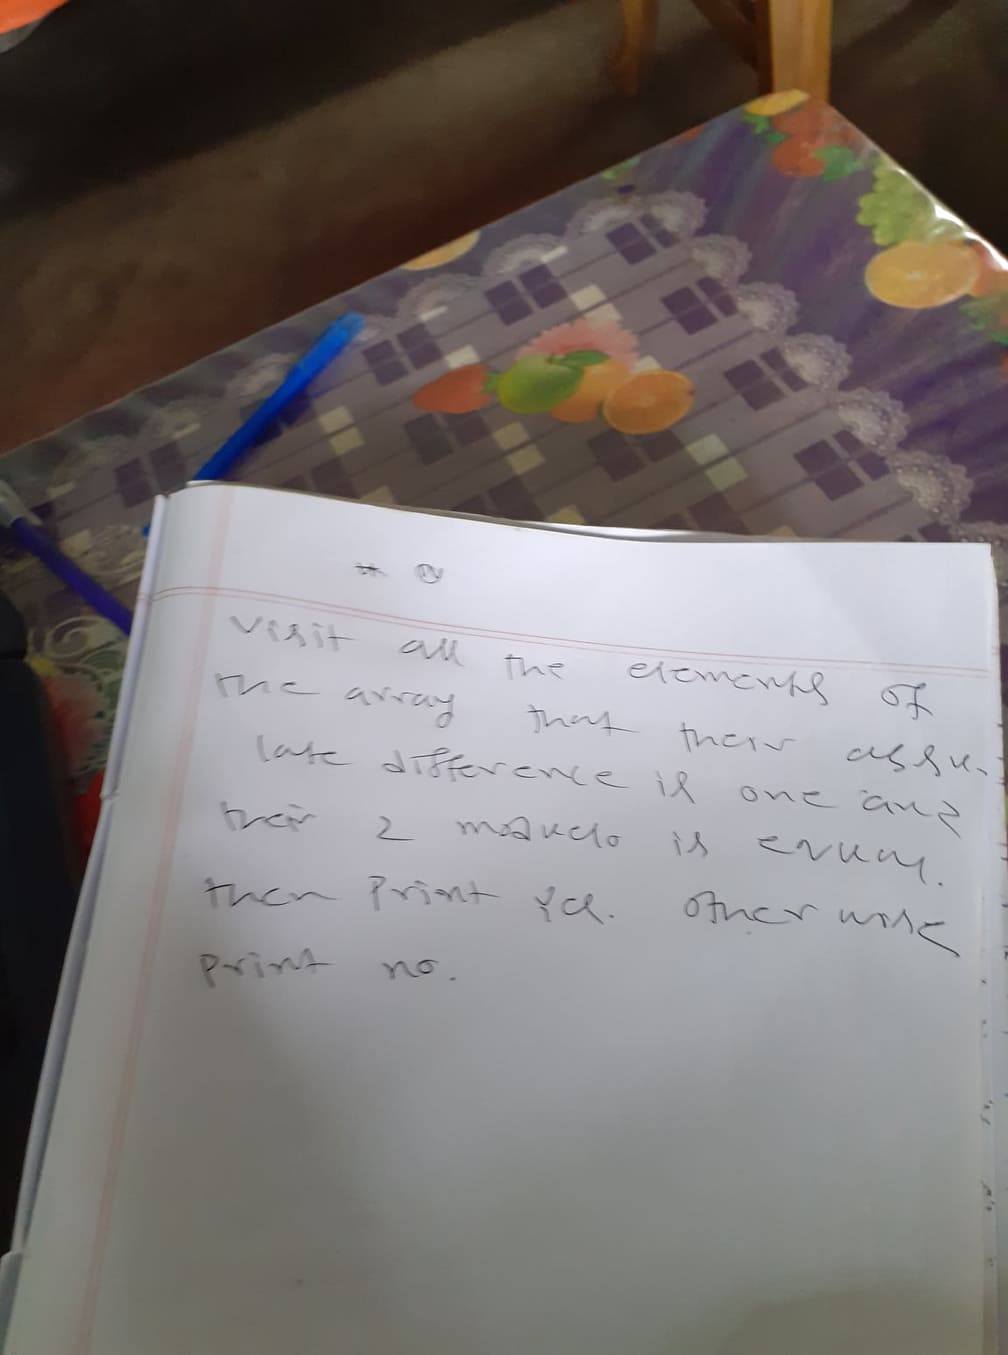 * N
visit all the elements of
the array that their assu-
late difference is one and
their 2 moduelo is equal.
then Print Yes. otherwise
print no.